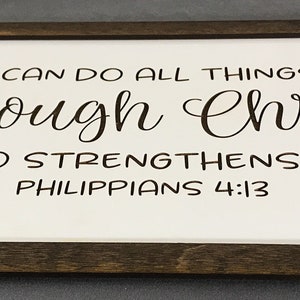 CAN DO ALL THINGS
ough Chr
O STRENGTHENS
PHILIPPIANS 4:13